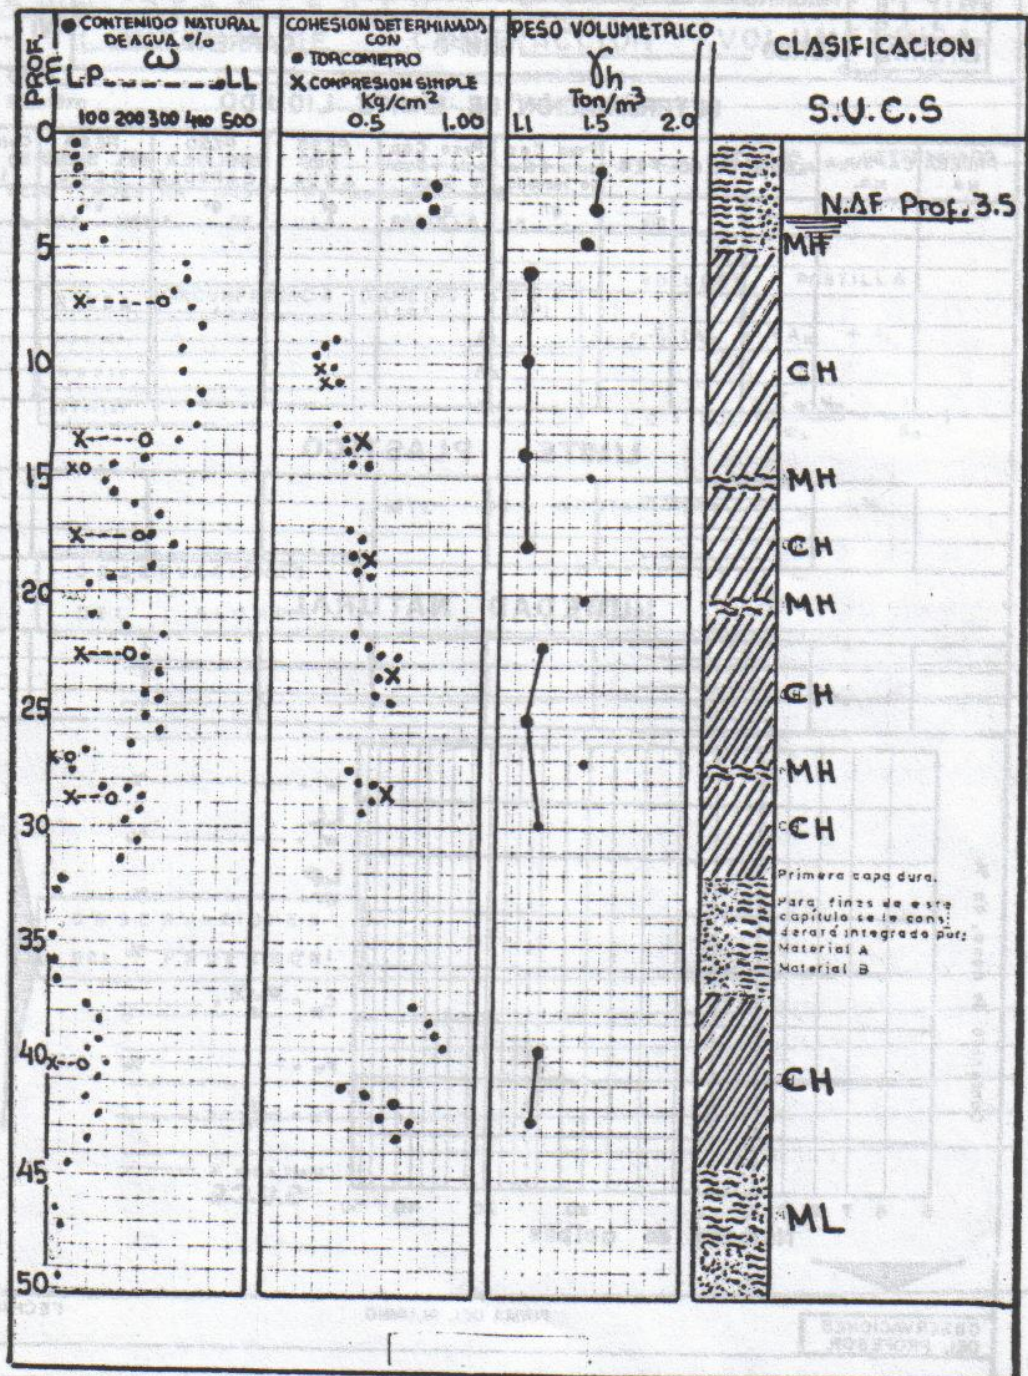 PROF. m.
● CONTENIDO NATURAL
DE AGUA %
ω
L.P. -------- .LL
100 200 300 400 500
COHESION DETERMINADA
CON
● TORCOMETRO
X COMPRESION SIMPLE
Kg/cm²
0.5 1.00
PESO VOLUMETRICO
γh
Ton/m³
1.1 1.5 2.0
CLASIFICACION
S.U.C.S
0
N.A.F. Prof. 3.5
5
MH
10
CH
15
MH
CH
20
MH
CH
25
MH
30
CH
Primera capa dura.
Para fines de este
capítulo se le consi
derará integrado por:
Material A
Material B
35
40
CH
45
ML
50